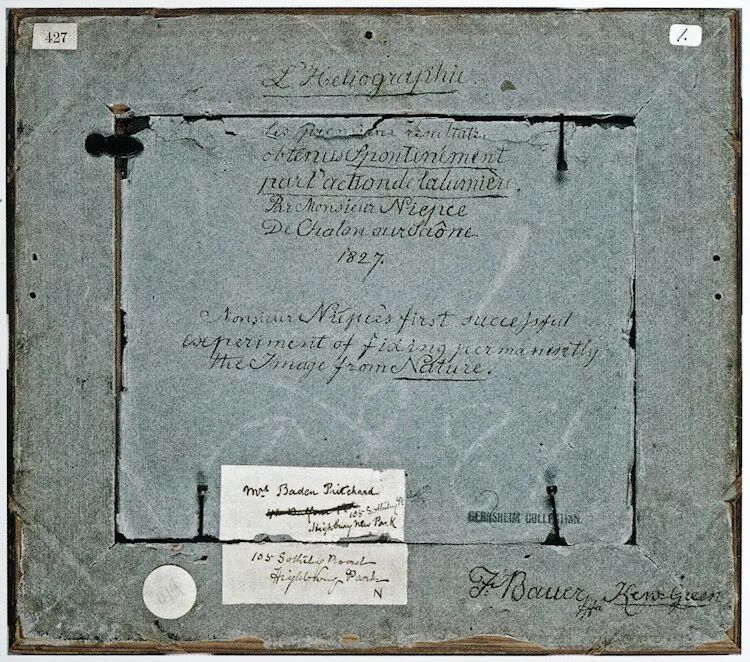 427
1.
L'Heliographie.
Les premiers résultats
obtenus Spontanément
par l'action de la lumière.
Par Monsieur Niepce
De Chalon sur Saône.
1827.
Monsieur Niepce's first successful
experiment of fixing permanently
the Image from Nature.
Mrs Baden Pritchard
105 Sotheby Rd
Highbury New Park
105 Sotheby Road
Highbury Park
N
GERNSHEIM COLLECTION.
F. Bauer Kew Green